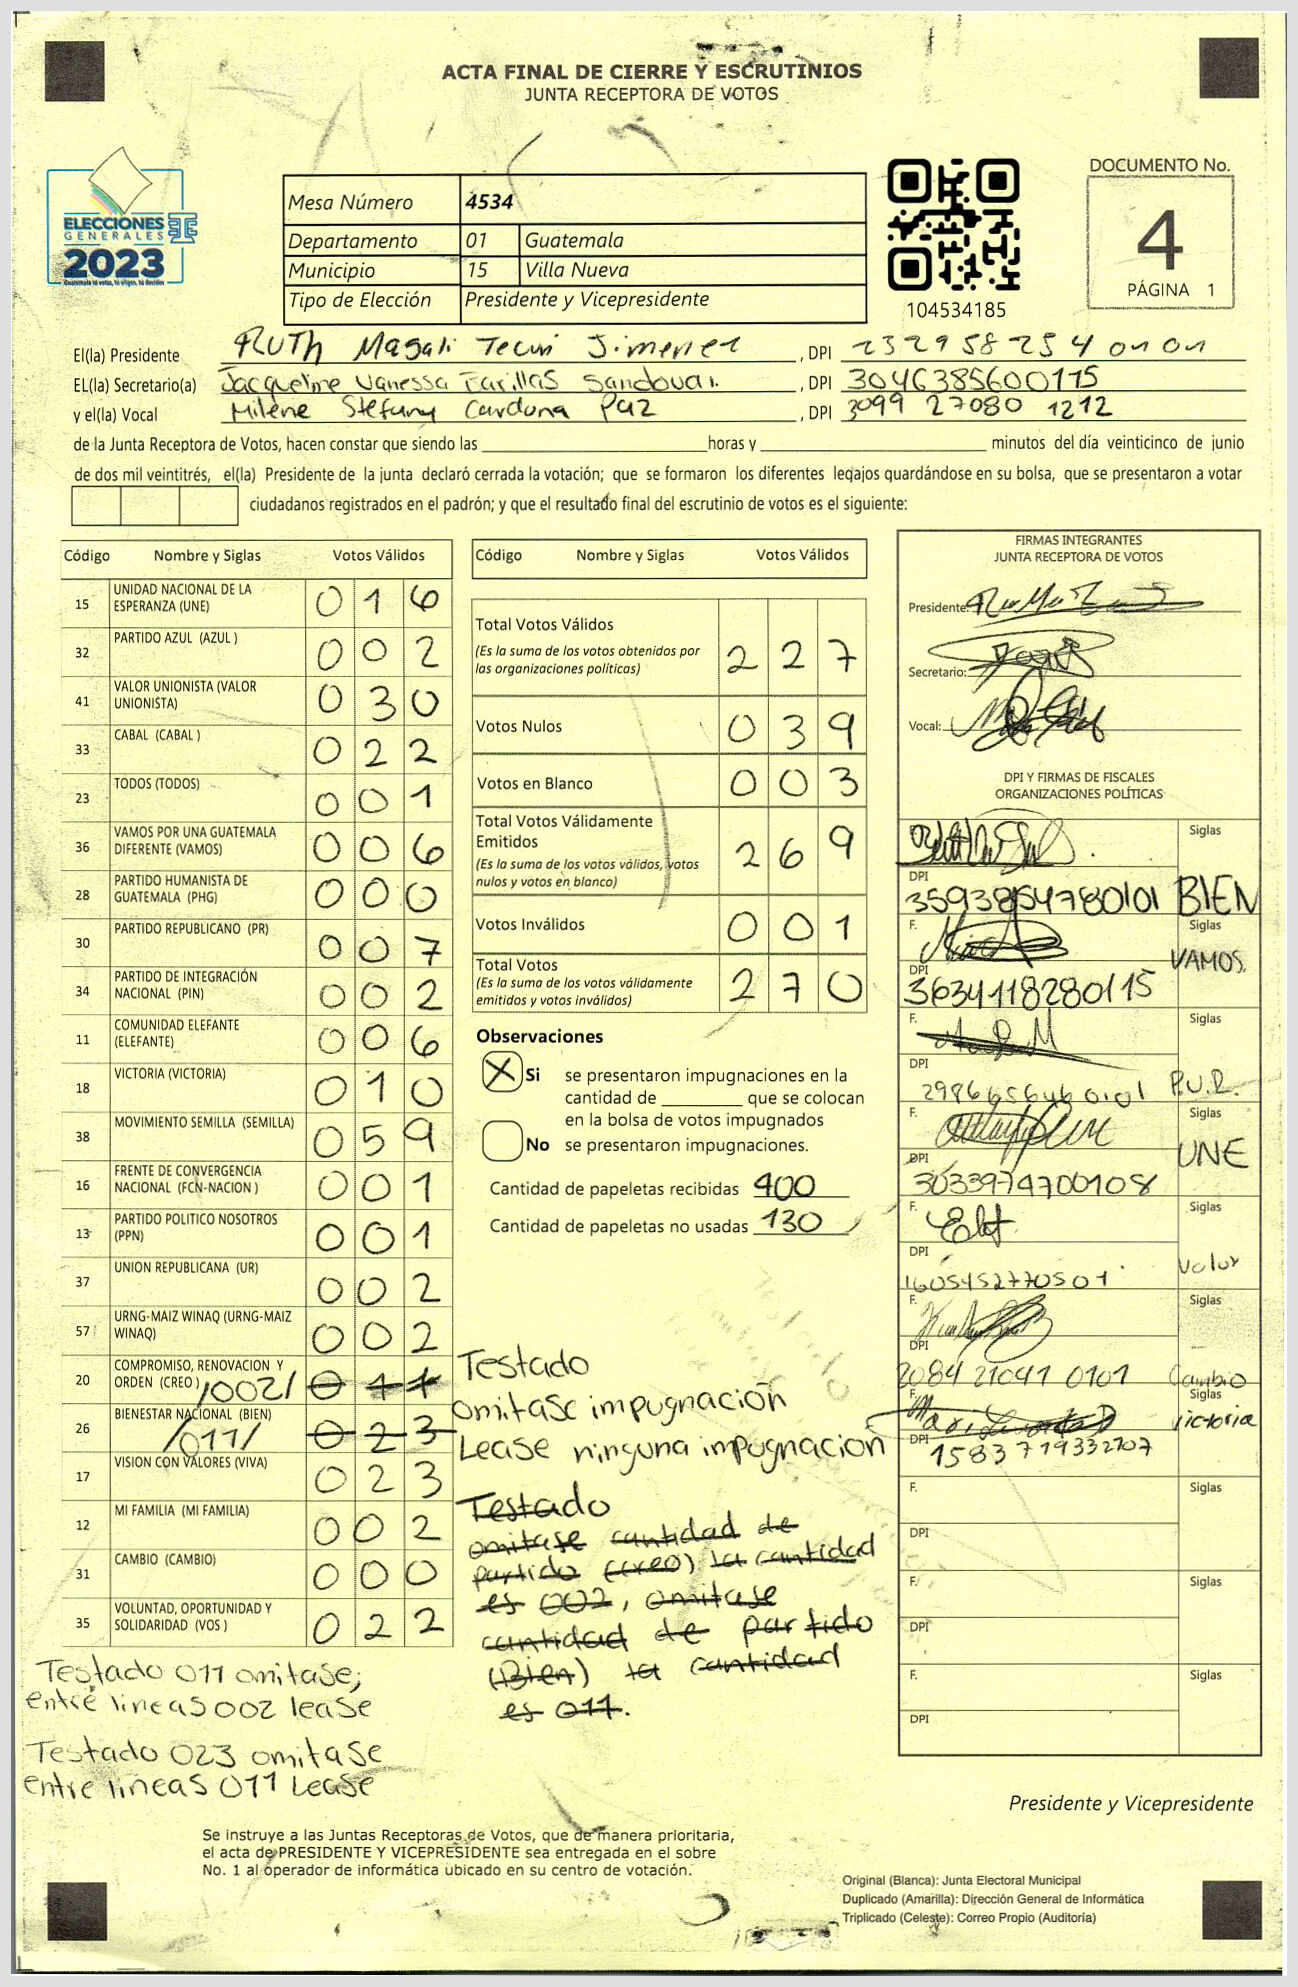 ACTA FINAL DE CIERRE Y ESCRUTINIOS
JUNTA RECEPTORA DE VOTOS
ELECCIONES
GENERALES
2023
Mesa Número 4534
Departamento 01 Guatemala
Municipio 15 Villa Nueva
Tipo de Elección Presidente y Vicepresidente
104534185
DOCUMENTO No.
4
PÁGINA 1
El(la) Presidente Ruth Magali Tecun Jimenez, DPI 2329 58254 0101
EL(la) Secretario(a) Jacqueline Vanessa Farillas Sandoval, DPI 3046385600115
y el(la) Vocal Milene Stefany Cardona Paz, DPI 3099 27080 1212
de la Junta Receptora de Votos, hacen constar que siendo las horas y minutos del día veinticinco de junio
de dos mil veintitrés, el(la) Presidente de la junta declaró cerrada la votación; que se formaron los diferentes legajos guardándose en su bolsa, que se presentaron a votar
ciudadanos registrados en el padrón; y que el resultado final del escrutinio de votos es el siguiente:
Código Nombre y Siglas Votos Válidos
15 UNIDAD NACIONAL DE LA ESPERANZA (UNE) 016
32 PARTIDO AZUL (AZUL ) 002
41 VALOR UNIONISTA (VALOR UNIONISTA) 030
33 CABAL (CABAL ) 022
23 TODOS (TODOS) 001
36 VAMOS POR UNA GUATEMALA DIFERENTE (VAMOS) 006
28 PARTIDO HUMANISTA DE GUATEMALA (PHG) 000
30 PARTIDO REPUBLICANO (PR) 007
34 PARTIDO DE INTEGRACIÓN NACIONAL (PIN) 002
11 COMUNIDAD ELEFANTE (ELEFANTE) 006
18 VICTORIA (VICTORIA) 010
38 MOVIMIENTO SEMILLA (SEMILLA) 059
16 FRENTE DE CONVERGENCIA NACIONAL (FCN-NACION ) 001
13 PARTIDO POLITICO NOSOTROS (PPN) 001
37 UNION REPUBLICANA (UR) 002
57 URNG-MAIZ WINAQ (URNG-MAIZ WINAQ) 002
20 COMPROMISO, RENOVACION Y ORDEN (CREO ) /002/ 011
26 BIENESTAR NACIONAL (BIEN) /011/ 023
17 VISION CON VALORES (VIVA) 023
12 MI FAMILIA (MI FAMILIA) 002
31 CAMBIO (CAMBIO) 000
35 VOLUNTAD, OPORTUNIDAD Y SOLIDARIDAD (VOS ) 022
Testado 011 omitase,
entre lineas 002 lease
Testado 023 omitase
entre lineas 011 Lease
Código Nombre y Siglas Votos Válidos
Total Votos Válidos 227
(Es la suma de los votos obtenidos por
las organizaciones políticas)
Votos Nulos 039
Votos en Blanco 003
Total Votos Válidamente
Emitidos 269
(Es la suma de los votos válidos, votos
nulos y votos en blanco)
Votos Inválidos 001
Total Votos 270
(Es la suma de los votos válidamente
emitidos y votos inválidos)
Observaciones
X Si se presentaron impugnaciones en la
cantidad de que se colocan
en la bolsa de votos impugnados
No se presentaron impugnaciones.
Cantidad de papeletas recibidas 400
Cantidad de papeletas no usadas 130
Testado
omitase impugnación
Lease ninguna impugnacion
Testado
omitase cantidad de
partido (creo) la cantidad
es 002, omitase
cantidad de partido
(Bien) la cantidad
es 011.
FIRMAS INTEGRANTES
JUNTA RECEPTORA DE VOTOS
Presidente:
Secretario:
Vocal:
DPI Y FIRMAS DE FISCALES
ORGANIZACIONES POLÍTICAS
Siglas
DPI
3593854780101 BIEN
F. Siglas
VAMOS
DPI
3634118280115
F. Siglas
DPI
2986656460101 P.U.R.
F. Siglas
UNE
DPI
3033974700108
F. Siglas
DPI
1605452770501 Valor
F. Siglas
DPI
2084 21041 0101 Cambio
F. Siglas
Victoria
DPI
1583719332707
F. Siglas
DPI
F. Siglas
DPI
F. Siglas
DPI
Presidente y Vicepresidente
Se instruye a las Juntas Receptoras de Votos, que de manera prioritaria,
el acta de PRESIDENTE Y VICEPRESIDENTE sea entregada en el sobre
No. 1 al operador de informática ubicado en su centro de votación.
Original (Blanca): Junta Electoral Municipal
Duplicado (Amarilla): Dirección General de Informática
Triplicado (Celeste): Correo Propio (Auditoría)